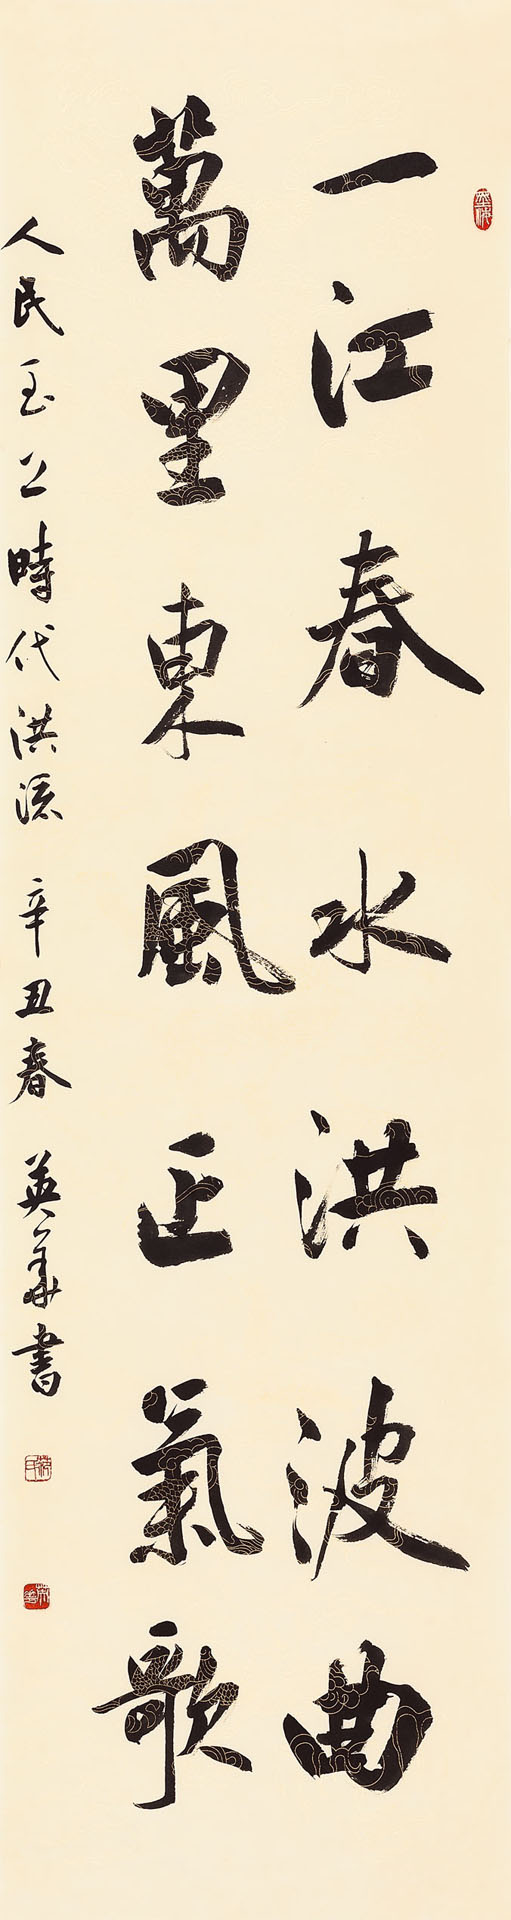 一江春水洪波曲
萬里東風正氣歌
人民至上時代洪流 辛丑春 英華書